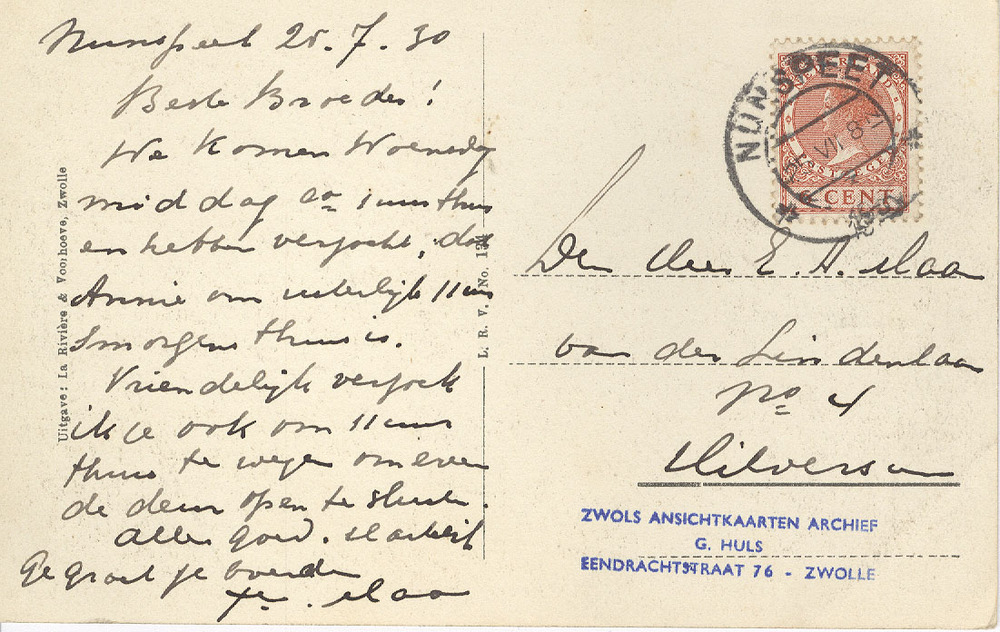 Nunspeet 28.7.30
Beste Broeder!
We komen Woensdag
middag ca 1 uur thuis
en hebben verzocht, dat
Annie om uiterlijk 11 uur
smorgens thuis is.
Vriendelijk verzoek
ik je ook om 11 uur
thuis te wezen om even
de deur open te sluiten.
Alles goed. Hartelijk
gegroet je broeder
Maa
Uitgave: La Rivière & Voorhoeve, Zwolle
L. R. V. No. 13
NUNSPEET
NEDERLAND
POSTZEGEL
CENT
Den Heer E. A. Maa
van der Lindenlaan
No 4
Hilversum
ZWOLS ANSICHTKAARTEN ARCHIEF
G. HULS
EENDRACHTSTRAAT 76 - ZWOLLE